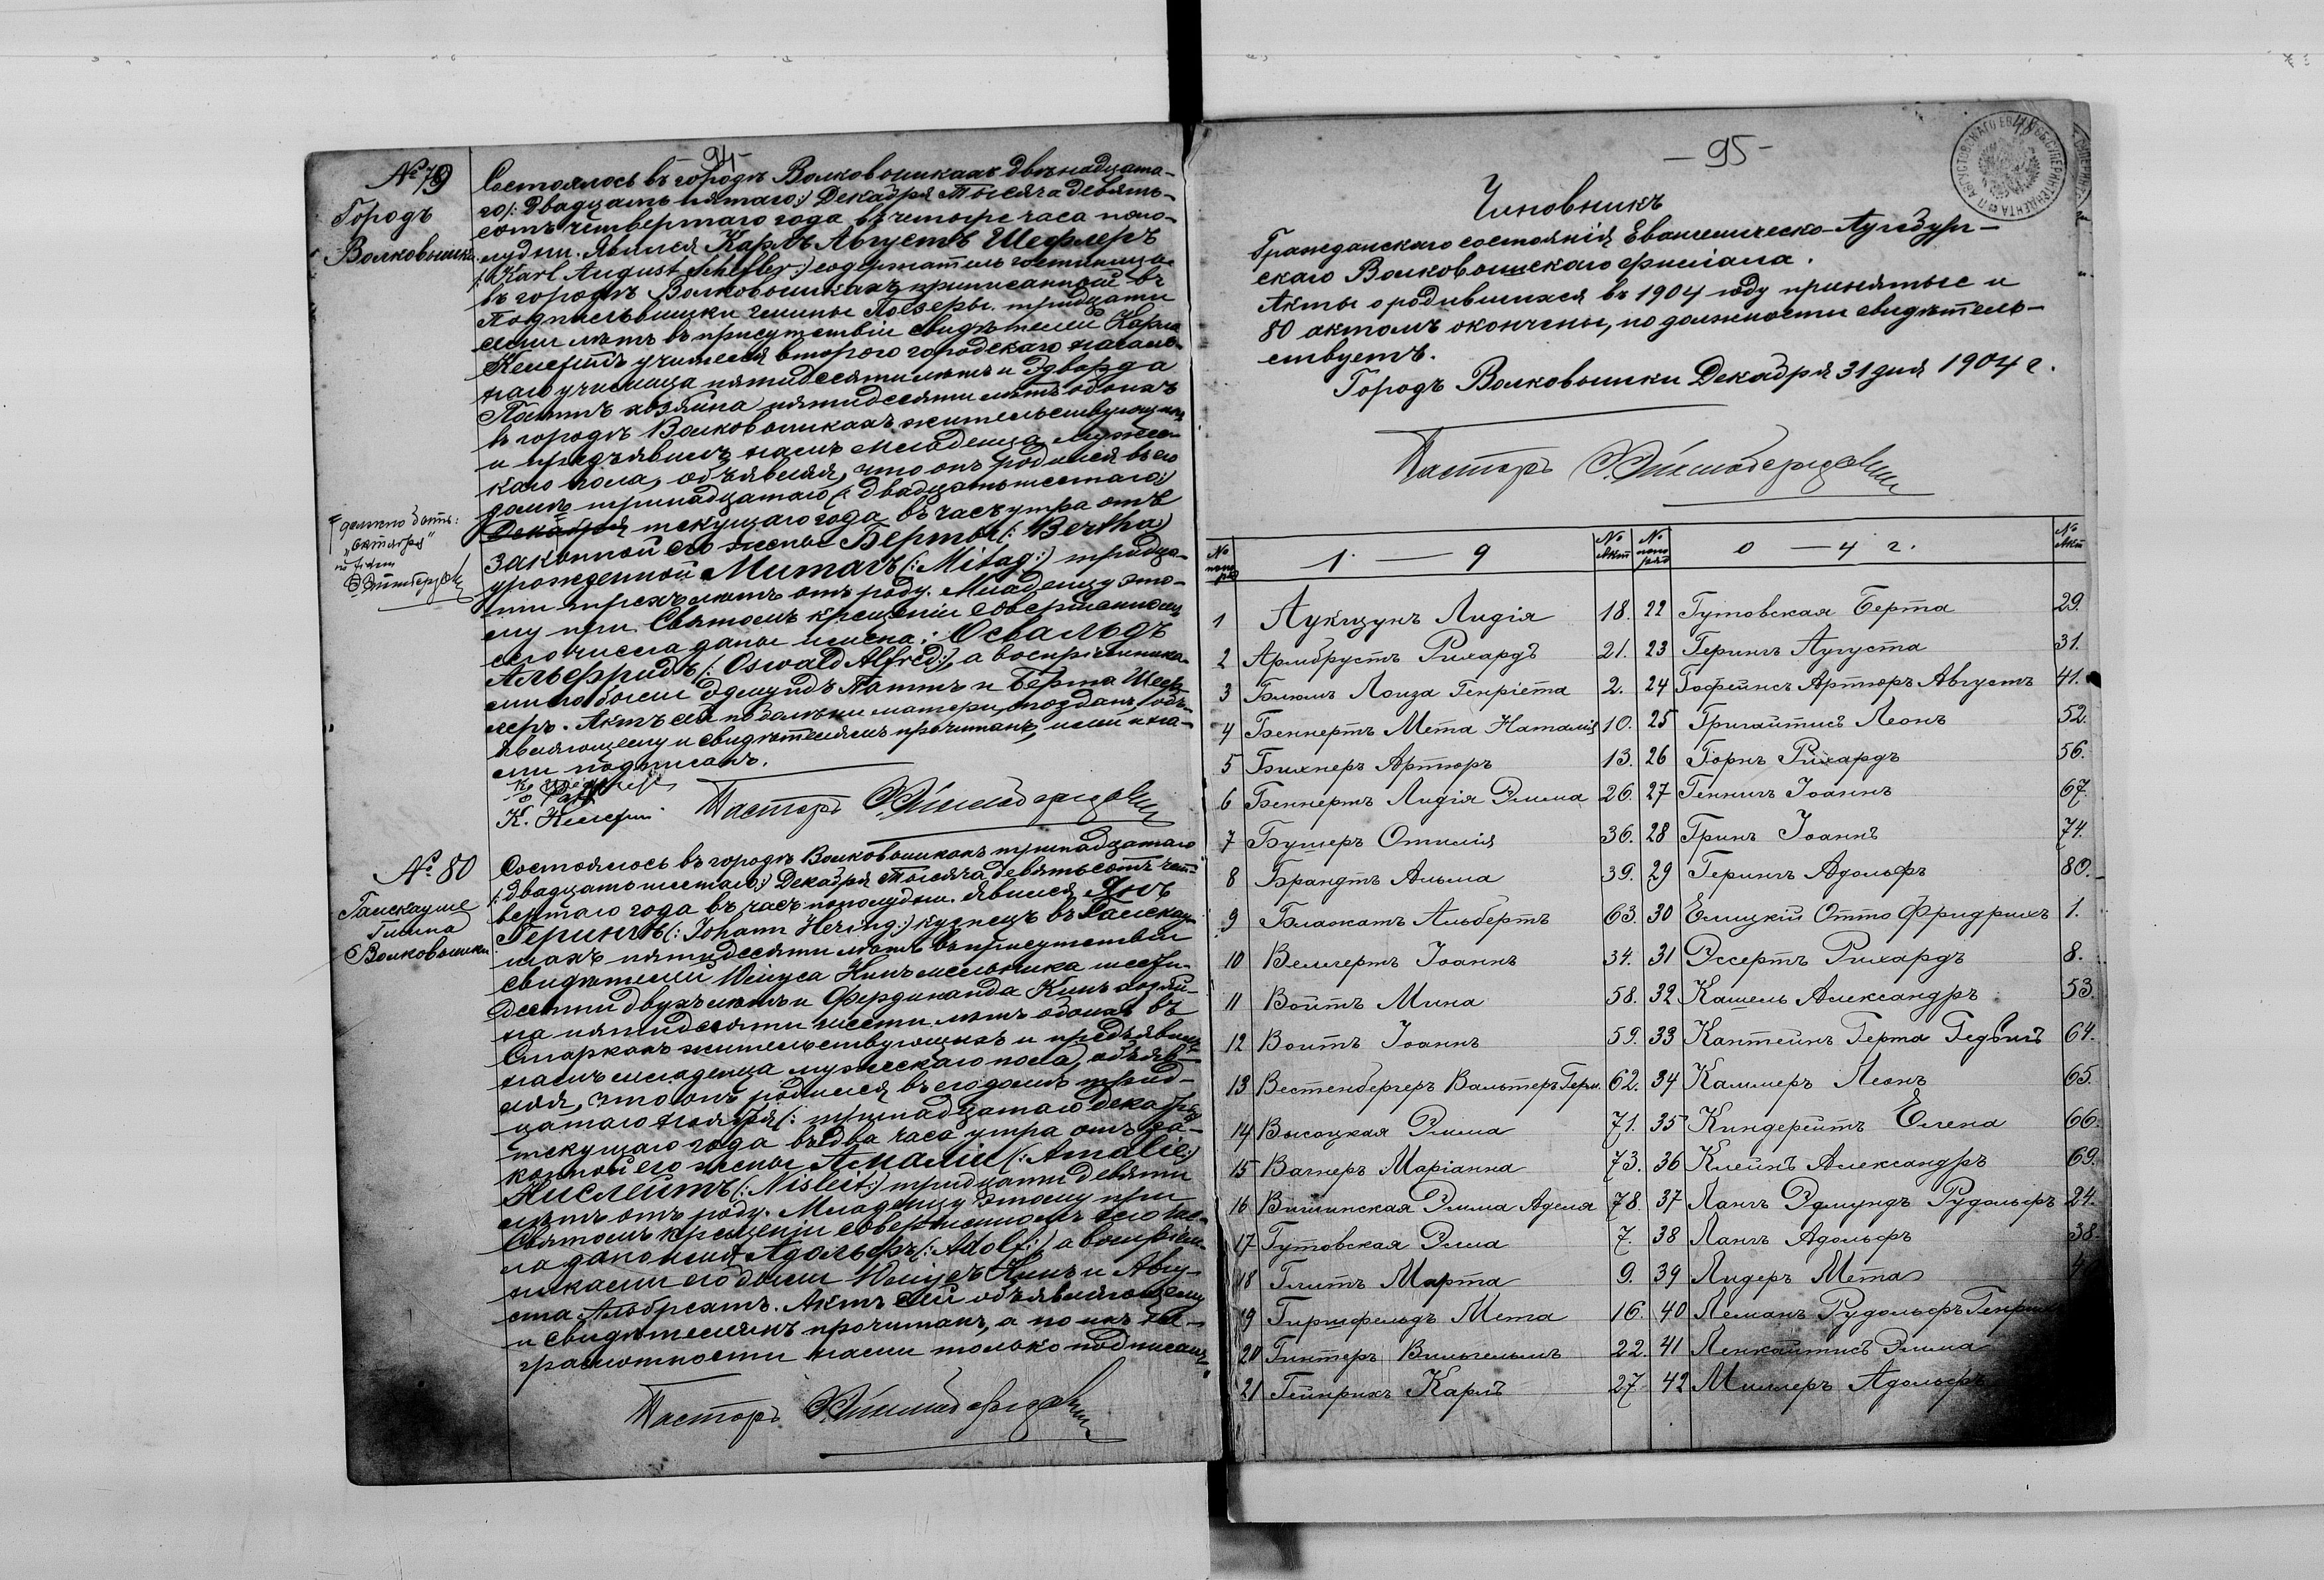 94
№ 79
Городъ
Волковышки.
Состоялось въ городѣ Волковышкахъ двѣнадцата-
го /: двадцать пятаго :/ Декабря Тысяча девять-
сотъ четвертаго года въ четыре часа попо-
лудни. Явился Карлъ Августъ Шефлеръ
/: Karl August Schefler :/ содержатель гостинницы
въ городѣ Волковышкахъ приписанный въ
гмины тридцати
семи лѣтъ въ присутствіи свидѣтелей Карла
учителя второго городскаго началь-
наго училища пятидесяти лѣтъ и Эдварда
Паттъ хозяина пятидесяти лѣтъ обоихъ
въ городѣ Волковышкахъ жительствующихъ
и предъявилъ намъ младенца мужес-
каго пола, объявляя, что онъ родился въ его
домѣ тринадцатаго /: двадцать шестаго :/
Декабря текущаго года въ часъ утра отъ
законной его жены Берты /: Bertha :/
урожденной Митагъ /: Mitag :/ тридца-
ти трехъ лѣтъ отъ роду. Младенцу это-
му при Святомъ крещеніи совершенномъ
сего числа даны имена: Освальдъ
Альфридъ /: Oswald Alfred :/, а воспріемника-
ми его были Эдмундъ Паттъ и Берта Шеф-
леръ. Актъ сей по болѣзни матери опозданъ, объ-
являющему и свидѣтелямъ прочитанъ, ими и на-
ми подписанъ.
должно быть:
„Октября"
К.
Пасторъ
№ 80
Гмина
Волковышки
Состоялось въ городѣ Волковышкахъ тринадцатаго
/: двадцать шестаго :/ Декабря Тысяча девятьсотъ чет-
вертаго года въ часъ пополудни. Явился Янъ
Герингъ /: Johann Hering :/ кузнецъ въ Гаискау-
шахъ пятидесяти лѣтъ въ присутствіи
свидѣтелей мельника шести-
десяти двухъ лѣтъ и Фердинанда хозяи-
на пятидесяти шести лѣтъ обоихъ въ
жительствующихъ и предъявилъ
намъ младенца мужескаго пола, объяв-
ляя, что онъ родился въ его домѣ трид-
цатаго Ноября /: тринадцатаго декабря :/
текущаго года въ два часа утра отъ за-
конной его жены Амаліи /: Amalie :/
Нислейтъ /: Nisleit :/ тридцати девяти
лѣтъ отъ роду. Младенцу этому при
Святомъ крещеніи совершенномъ сего чис-
ла дано имя Адольфъ /: Adolf :/ а воспріем-
никами его были и Авгу-
ста Альбрехтъ. Актъ сей объявляющему
и свидѣтелямъ прочитанъ, а по ихъ не-
грамотности нами только подписанъ.
Пасторъ
— 95 —
Чиновникъ
Гражданскаго состоянія Евангелическо-Аугсбург-
скаго Волковышскаго филіала.
Акты о родившихся въ 1904 году принятые и
80 актомъ окончены, по должности свидѣтель-
ствуетъ.
Городъ Волковышки Декабря 31 дня 1904 г.
Пасторъ
№ 1 — 9 № Акт № 0 — 4 г. № Акт
1 Аукщунъ Лидія 18. 22 Гутовская Берта 29.
2 Армбрустъ Рихардъ 21. 23 Герингъ Аугуста 31.
3 Блюмъ Лоиза Генріета 2. 24 Гофейнсъ Артюръ Августъ 41.
4 Беннертъ Мета Наталія 10. 25 Григайтисъ Леонъ 52.
5 Бихнеръ Артюръ 13. 26 Горнъ Рихардъ 56.
6 Беннертъ Лидія Эмма 26. 27 Геннигъ Іоаннъ 67.
7 Бушеръ Отилія 36. 28 Гринъ Іоаннъ 74.
8 Брандтъ Альма 39. 29 Герингъ Адольфъ 80.
9 Блажатъ Альбертъ 63. 30 Елицкій Отто Фридрихъ 1.
10 Веллертъ Іоаннъ 34. 31 Эссертъ Рихардъ 8.
11 Войтъ Мина 58. 32 Кашель Александръ 53.
12 Воитъ Іоаннъ 59. 33 Каптейнъ Герта Гедвигъ 64.
13 Вестенбергеръ Вальтеръ Герм. 62. 34 Каммеръ Леонъ 65.
14 Высоцкая Эмма 71. 35 Киндерейтъ Елена 66.
15 Вагнеръ Маріанна 73. 36 Клейнъ Александръ 69.
16 Вишинская Эмма Аделя 78. 37 Лангъ Эдмундъ Рудольфъ 24.
17 Гутовская Эмма 7. 38 Лангъ Адольфъ 38.
18 Глитъ Марта 9. 39 Лидеръ Мета
19 Гиршфельдъ Мета 16. 40 Леманъ Рудольфъ
20 Гинтеръ Вильгельмъ 22. 41 Ленкайтисъ Эмма
21 Гейнрихъ Карлъ 27. 42 Миллеръ Адольфъ